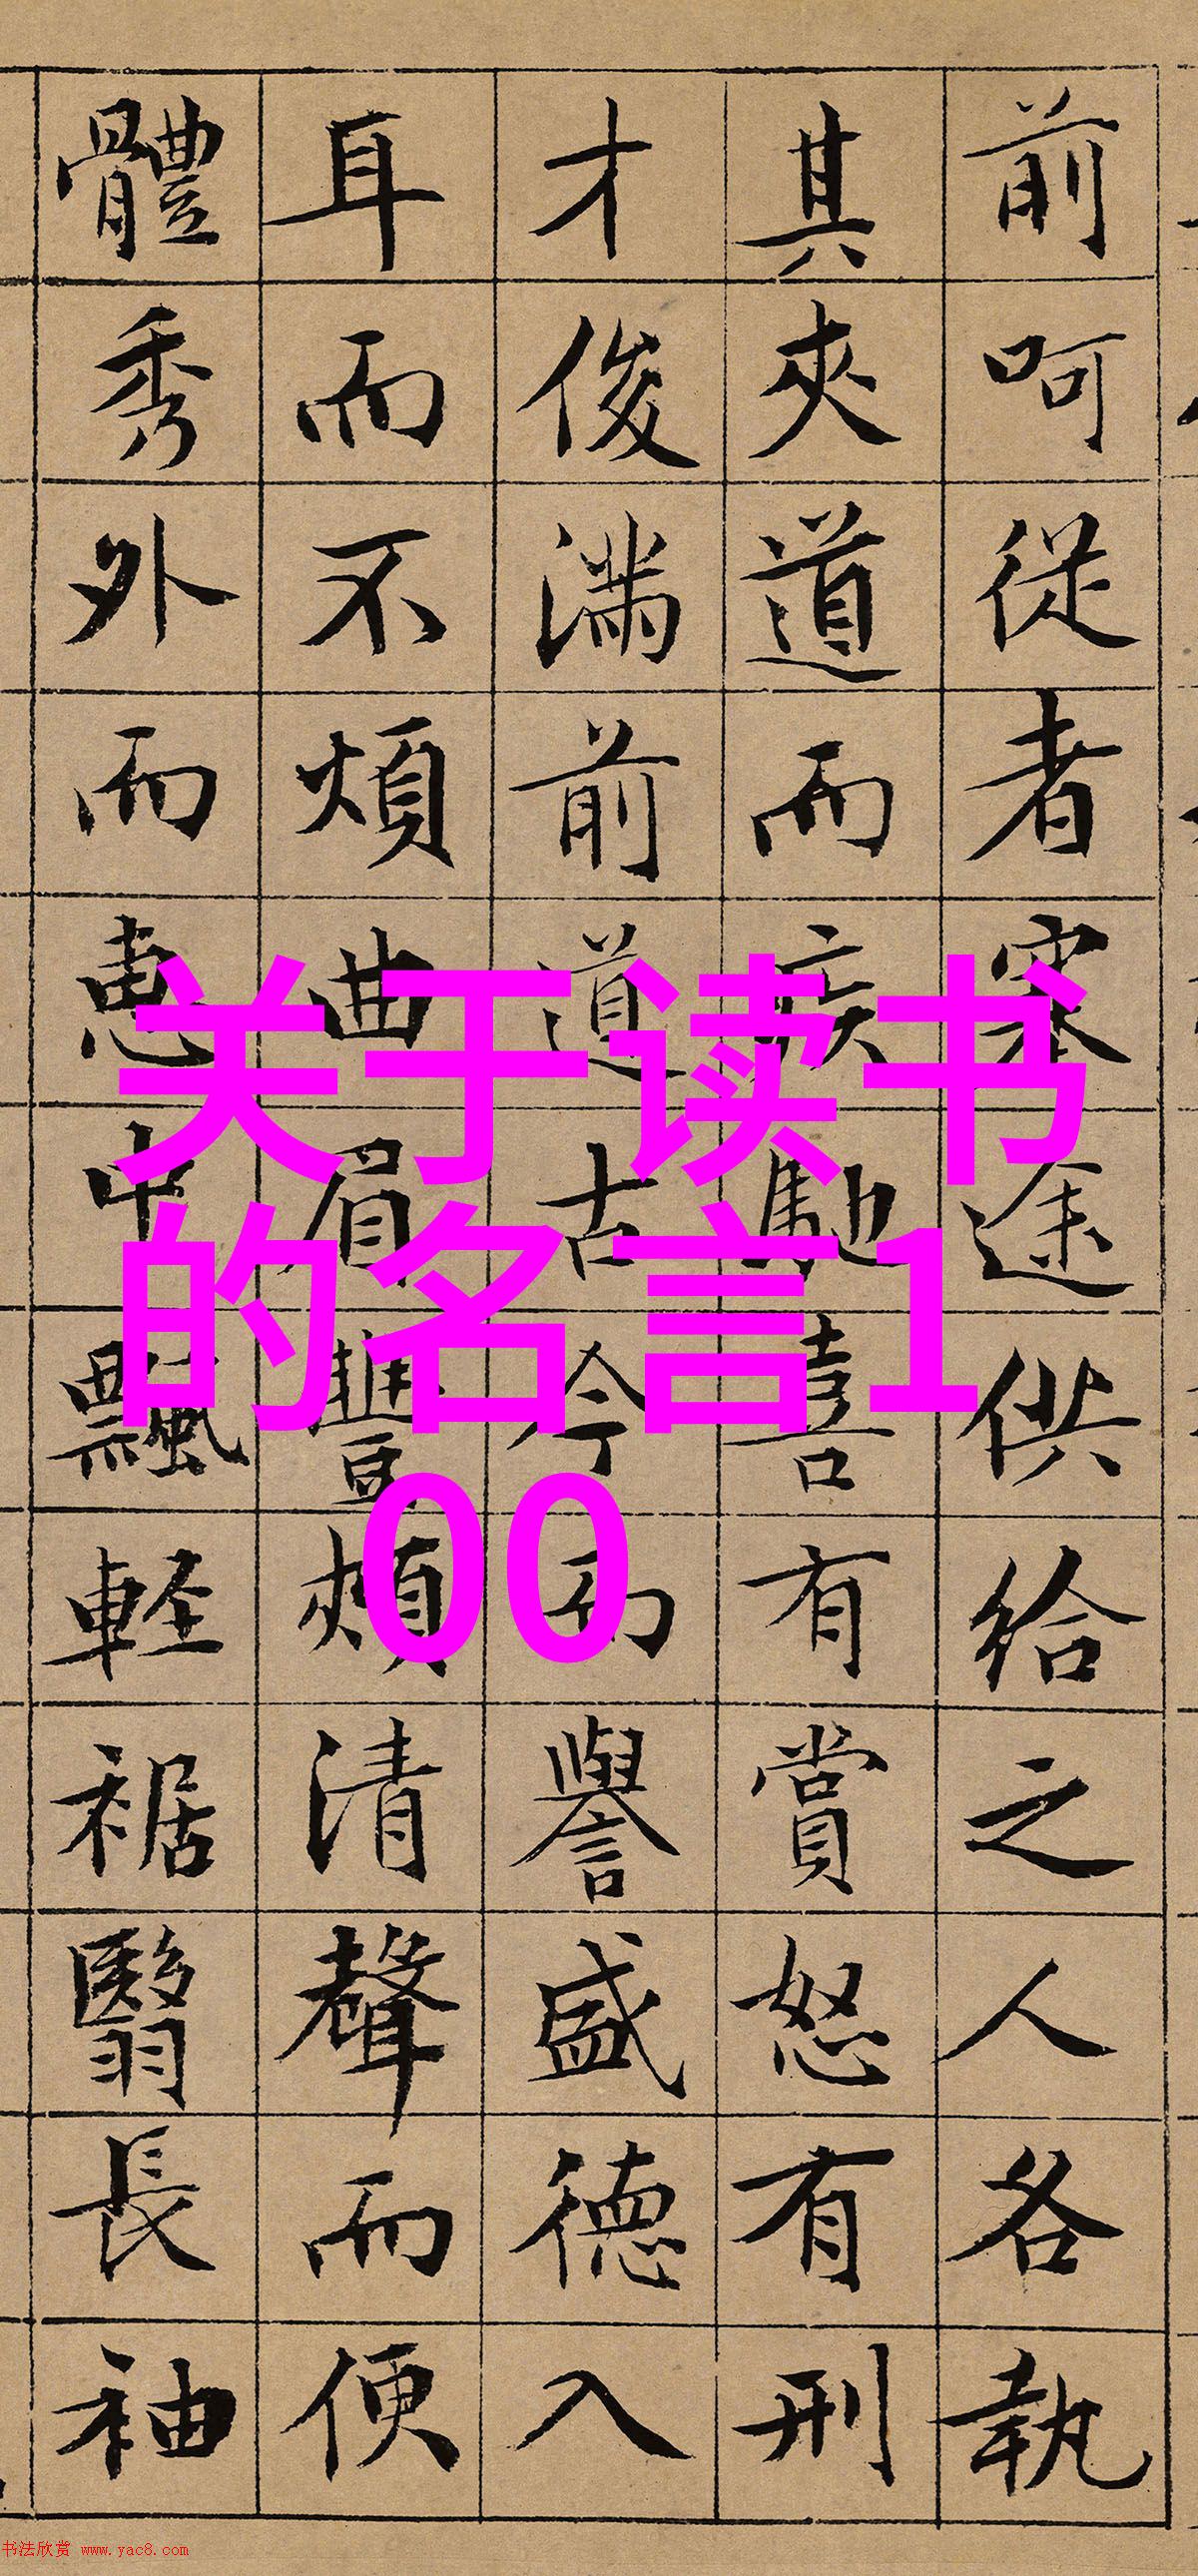 前呵從者塞途供給之人各執
其夾道而疾馳喜有賞怒有刑
才俊滿前道古今而譽盛德入
耳而不煩曲眉豐頰清聲而便
體秀外而惠中飄輕裾翳長袖
关于读书
的名言1
00
书法欣赏 www.yac8.com